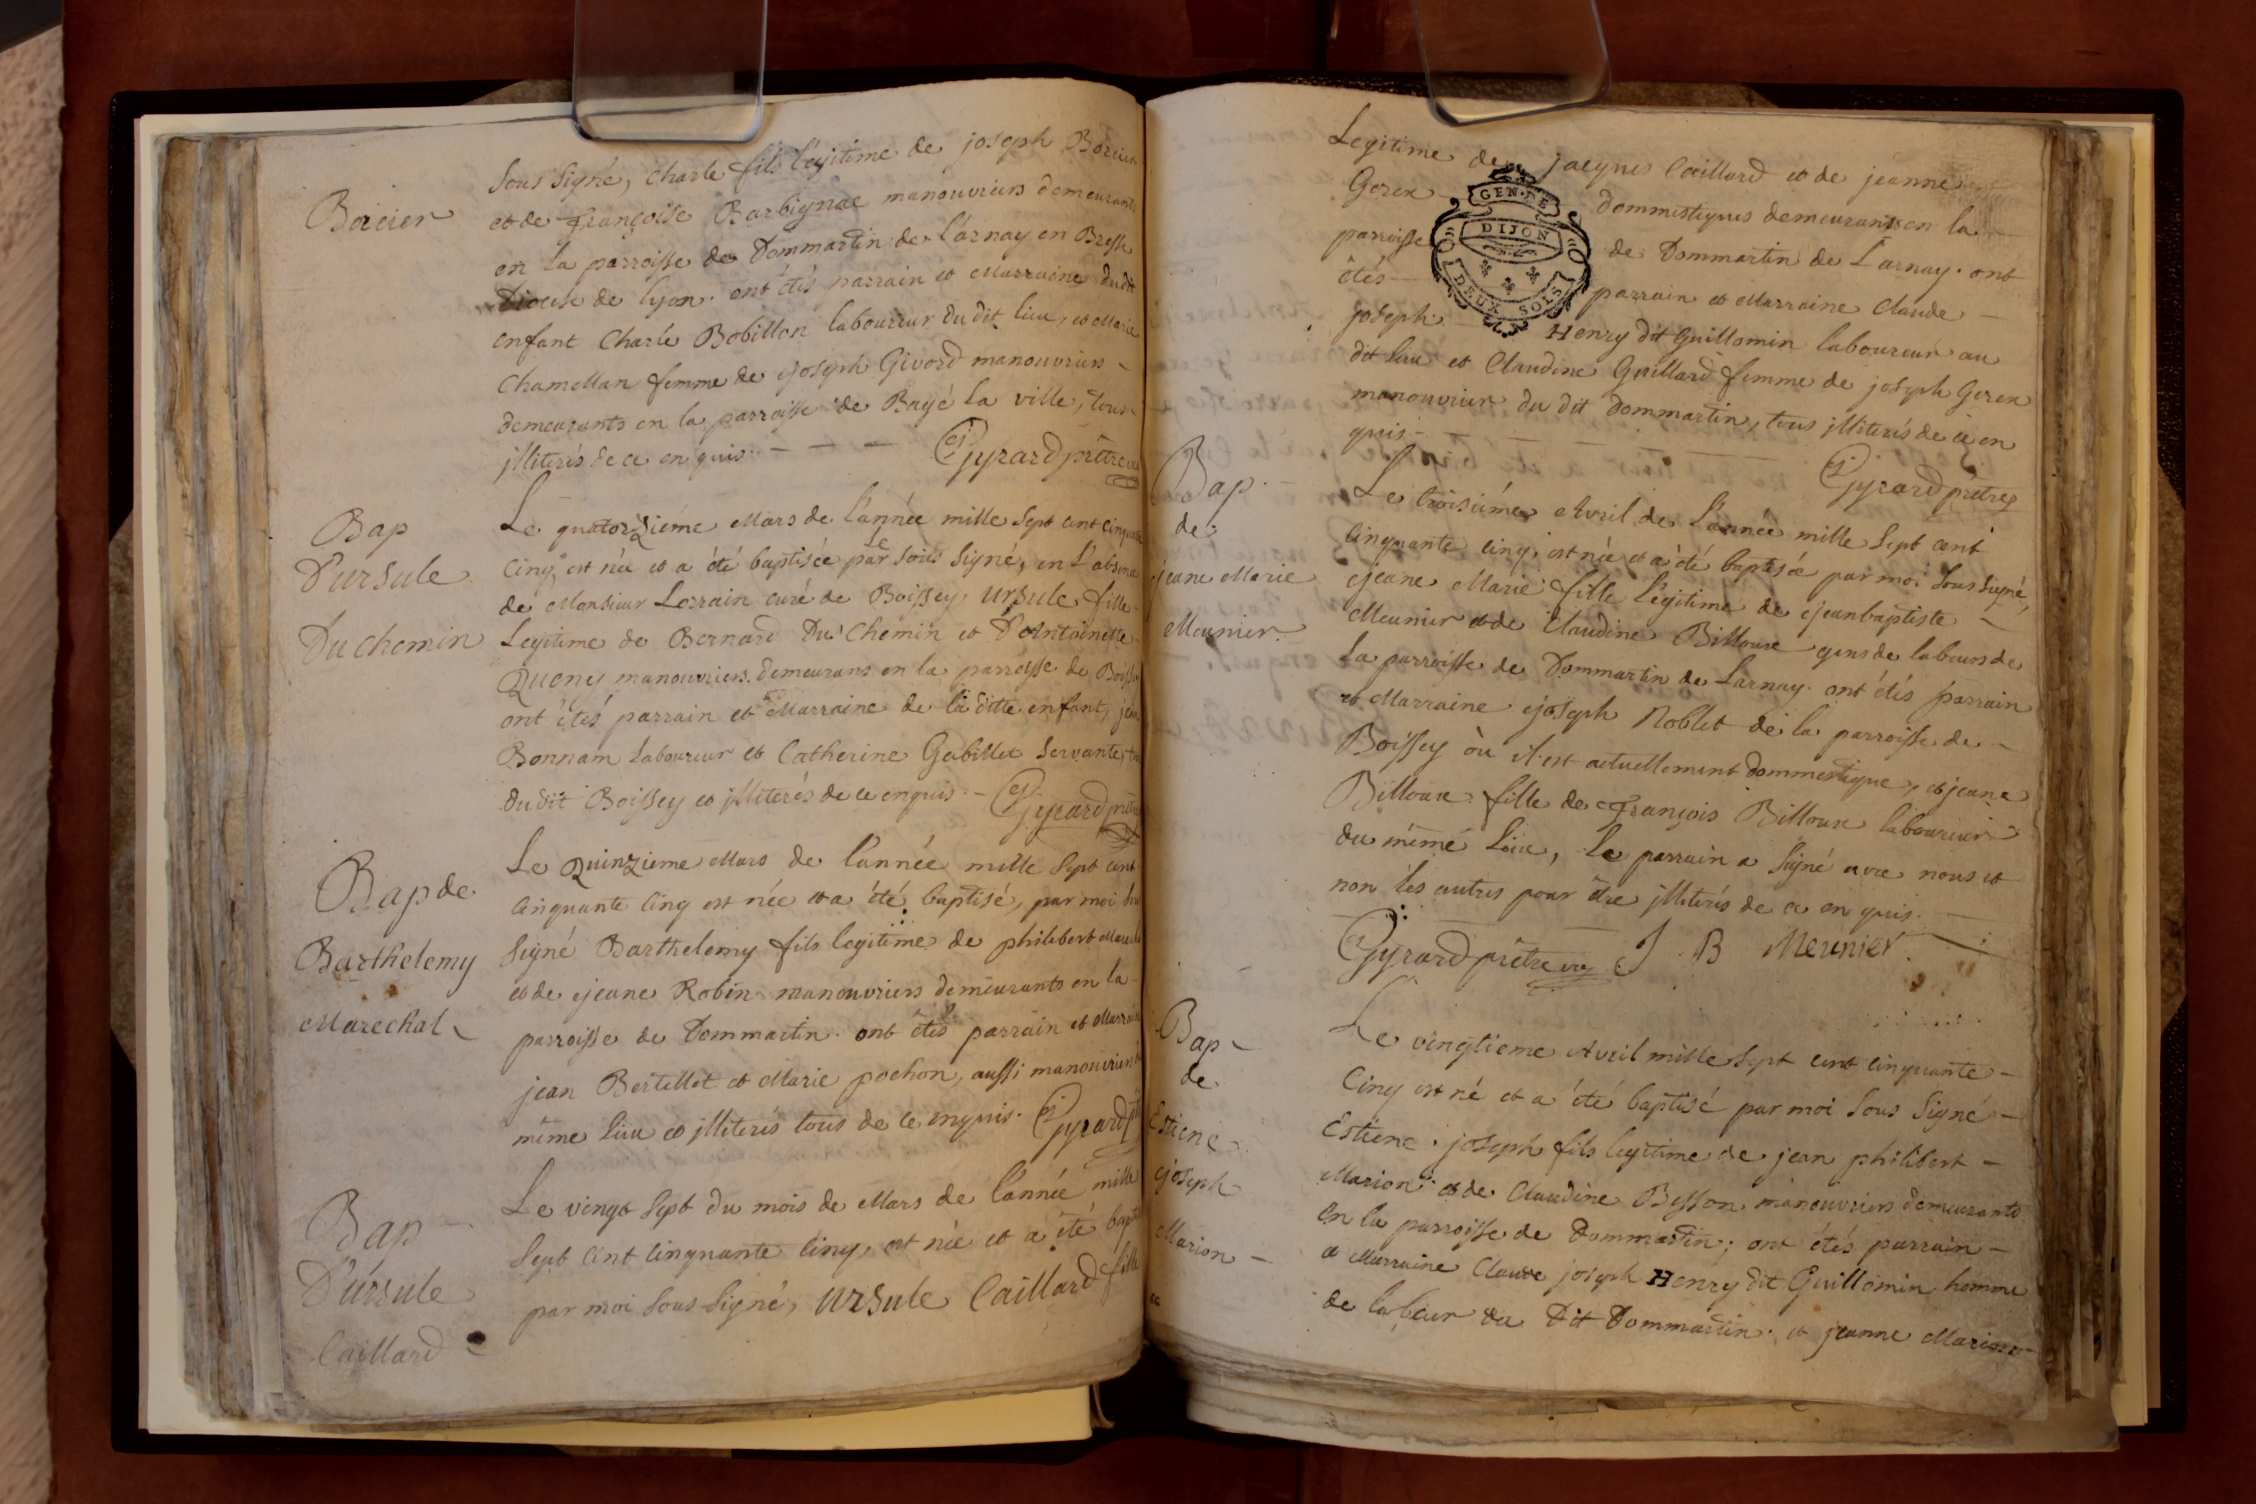 Borcier
sous signé, charle fils legitime de joseph Borcier
et de françoise Barbignac manouvriers demeurants
en la parroisse de Dommartin de Larnay en Bresse
Diocese de lyon. ont étés parrain et Marraine du dit
enfant Charle Bobillon laboureur du dit lieu, et Marie
Chamellan femme de joseph Givord manouvriers -
demeurants en la parroisse de Bagé la ville, tous
jlliterés de ce enquis. - - - Gyrard prêtre
Bap
D'ursule
Du chemin
Le quatorzième Mars de l'année mille sept cent cinquante
cinq, est née et a été baptisée par le sous signé, en L'absence
de Monsieur Lorrain curé de Boissey, ursule fille
Legitime de Bernard Du Chemin et D'Antoinette
Queny manouvriers demeurans en la parroisse de Boissey
ont étés parrain et Marraine de la ditte enfant, jean
Bonnam laboureur et Catherine Gabillet servante,
du dit Boissey et jlliterés de ce enquis - Gyrard prêtre
Bap de
Barthelemy
Marechal
Le Quinzieme Mars de l'année mille sept cent
cinquante cinq est née et a été baptisé, par moi sous
signé Barthelemy fils legitime de philibert Marechal
et de jeane Robin manouvriers demeurants en la
parroisse de Dommartin. ont étés parrain et Marraine
jean Bertellet et Marie pochon, aussi manouvriers
même lieu et jlliterés tous de ce enquis. Gyrard
Bap -
D'ursule
Caillard
Le vingt sept du mois de Mars de l'année mille
sept cent cinquante cinq, est née et a été
par moi sous signé, ursule Caillard fille
Legitime de jacque Caillard et de jeanne
Goren dommestiques demeurants en la
parroisse de Dommartin de Larnay. ont
étés parrain et Marraine Claude -
joseph Henry dit Guillomin laboureur au
dit lieu et Claudine Guillard femme de joseph Goren
manouvrier du dit dommartin, tous jlliterés de ce en
quis -
Gyrard prêtre
GEN. DE
DIJON
DEUX SOLS
Bap.
de
jeane Marie
Meunier.
Le troisiéme Avril de l'année mille sept cent
cinquante cinq, est née et a été baptisée par moi sous signé,
jeane Marie fille legitime de jeanbaptiste -
Meunier et de Claudine Billoux gens de labeurs de
la parroisse de Dommartin de Larnay. ont étés parrain
et Marraine joseph Noblet de la parroisse de -
Boissey où il est actuellement dommestique, et jeane
Billoux fille de françois Billoux laboureur
du même Lieu, Le parrain a signé avec nous et
non les autres pour être jlliterés de ce enquis.
Gyrard prêtre J. B Meunier.
Bap
de
Estiene
joseph
Marion -
Le vingtieme Avril mille sept cent cinquante -
Cinq est né et a été baptisé par moi sous signé -
Estiene joseph fils legitime de jean philibert -
Marion et de Claudine Besson manouvriers demeurants
en la parroisse de Dommartin; ont étés parrain -
et Marraine Claude joseph Henry dit Guillomin homme
de labeur du Dit Dommartin. et jeanne Marion